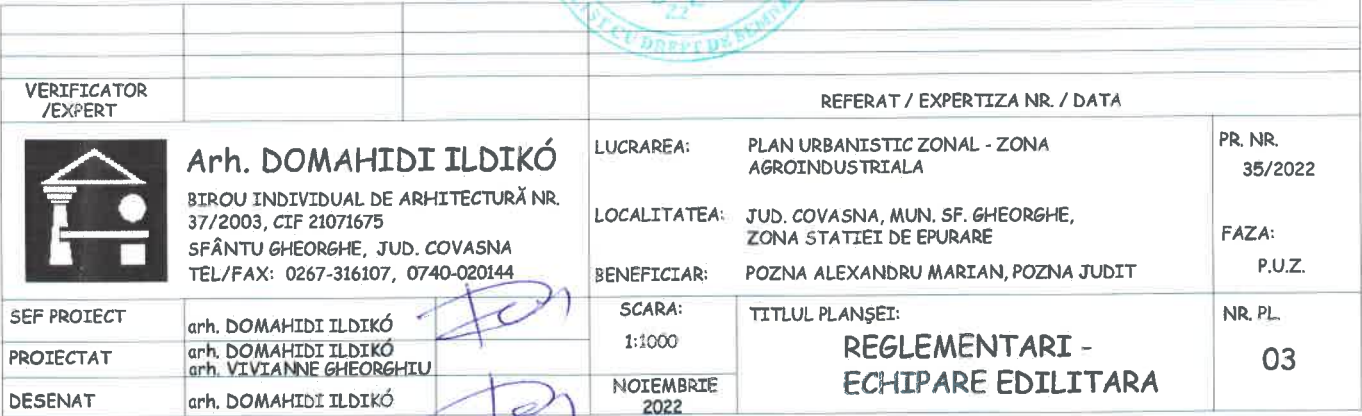 22
CU DREPT DE
VERIFICATOR
/EXPERT
REFERAT / EXPERTIZA NR. / DATA
Arh. DOMAHIDI ILDIKÓ
BIROU INDIVIDUAL DE ARHITECTURĂ NR.
37/2003, CIF 21071675
SFÂNTU GHEORGHE, JUD. COVASNA
TEL/FAX: 0267-316107, 0740-020144
LUCRAREA:
PLAN URBANISTIC ZONAL - ZONA
AGROINDUSTRIALA
LOCALITATEA:
JUD. COVASNA, MUN. SF. GHEORGHE,
ZONA STATIEI DE EPURARE
BENEFICIAR:
POZNA ALEXANDRU MARIAN, POZNA JUDIT
PR. NR.
35/2022
FAZA:
P.U.Z.
SEF PROIECT
arh. DOMAHIDI ILDIKÓ
PROIECTAT
arh. DOMAHIDI ILDIKÓ
arh. VIVIANNE GHEORGHIU
DESENAT
arh. DOMAHIDI ILDIKÓ
SCARA:
1:1000
NOIEMBRIE
2022
TITLUL PLANŞEI:
REGLEMENTARI -
ECHIPARE EDILITARA
NR. PL.
03